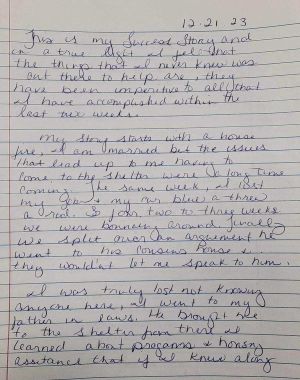 12-21-23
This is my Success Story and
in a true light I feel that
the things that I never knew was
out there to help are, they
have been imperative to all that
I have accomplished within the
last two weeks.
My story starts with a house
fire, I am married but the issues
that lead up to me having to
come to the shelter were a long time
coming. The same week, I lost
my job & my car blew a threw
a rod. So for two to three weeks
we were bouncing around. finally
we split over an argument he
went to his cousins house &
they wouldnt let me speak to him.
I was truly lost not knowing
anyone here, I went to my
father in laws. He brought me
to the shelter from there I
learned about programs & housing
assistance that if I knew along